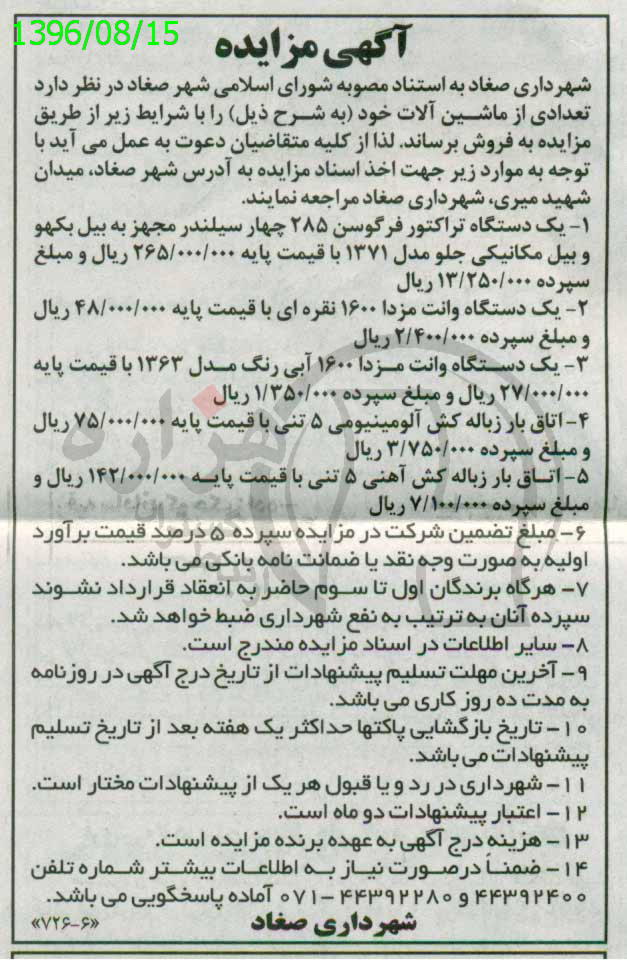 1396/08/15
آگهی مزایده
شهرداری صغاد به استناد مصوبه شورای اسلامی شهر صغاد در نظر دارد
تعدادی از ماشین آلات خود (به شرح ذیل) را با شرایط زیر از طریق
مزایده به فروش برساند. لذا از کلیه متقاضیان دعوت به عمل می آید با
توجه به موارد زیر جهت اخذ اسناد مزایده به آدرس شهر صغاد، میدان
شهید میری، شهرداری صغاد مراجعه نمایند.
۱- یک دستگاه تراکتور فرگوسن ۲۸۵ چهار سیلندر مجهز به بیل بکهو
و بیل مکانیکی جلو مدل ۱۳۷۱ با قیمت پایه ۲۶۵/۰۰۰/۰۰۰ ریال و مبلغ
سپرده ۱۳/۲۵۰/۰۰۰ ریال
۲- یک دستگاه وانت مزدا ۱۶۰۰ نقره ای با قیمت پایه ۴۸/۰۰۰/۰۰۰ ریال
و مبلغ سپرده ۲/۴۰۰/۰۰۰ ریال
۳- یک دستگاه وانت مزدا ۱۶۰۰ آبی رنگ مدل ۱۳۶۳ با قیمت پایه
۲۷/۰۰۰/۰۰۰ ریال و مبلغ سپرده ۱/۳۵۰/۰۰۰ ریال
۴- اتاق بار زباله کش آلومینیومی ۵ تنی با قیمت پایه ۷۵/۰۰۰/۰۰۰ ریال
و مبلغ سپرده ۳/۷۵۰/۰۰۰ ریال
۵- اتاق بار زباله کش آهنی ۵ تنی با قیمت پایه ۱۴۲/۰۰۰/۰۰۰ ریال و
مبلغ سپرده ۷/۱۰۰/۰۰۰ ریال
۶- مبلغ تضمین شرکت در مزایده سپرده ۵ درصد قیمت برآورد
اولیه به صورت وجه نقد یا ضمانت نامه بانکی می باشد.
۷- هرگاه برندگان اول تا سوم حاضر به انعقاد قرارداد نشوند
سپرده آنان به ترتیب به نفع شهرداری ضبط خواهد شد.
۸- سایر اطلاعات در اسناد مزایده مندرج است.
۹- آخرین مهلت تسلیم پیشنهادات از تاریخ درج آگهی در روزنامه
به مدت ده روز کاری می باشد.
۱۰- تاریخ بازگشایی پاکتها حداکثر یک هفته بعد از تاریخ تسلیم
پیشنهادات می باشد.
۱۱- شهرداری در رد و یا قبول هر یک از پیشنهادات مختار است.
۱۲- اعتبار پیشنهادات دو ماه است.
۱۳- هزینه درج آگهی به عهده برنده مزایده است.
۱۴- ضمناً درصورت نیاز به اطلاعات بیشتر شماره تلفن
۴۴۳۹۲۴۰۰ و ۴۴۳۹۲۲۸۰-۰۷۱ آماده پاسخگویی می باشد.
شهرداری صغاد
«۷۲۶-۶»
هزاره